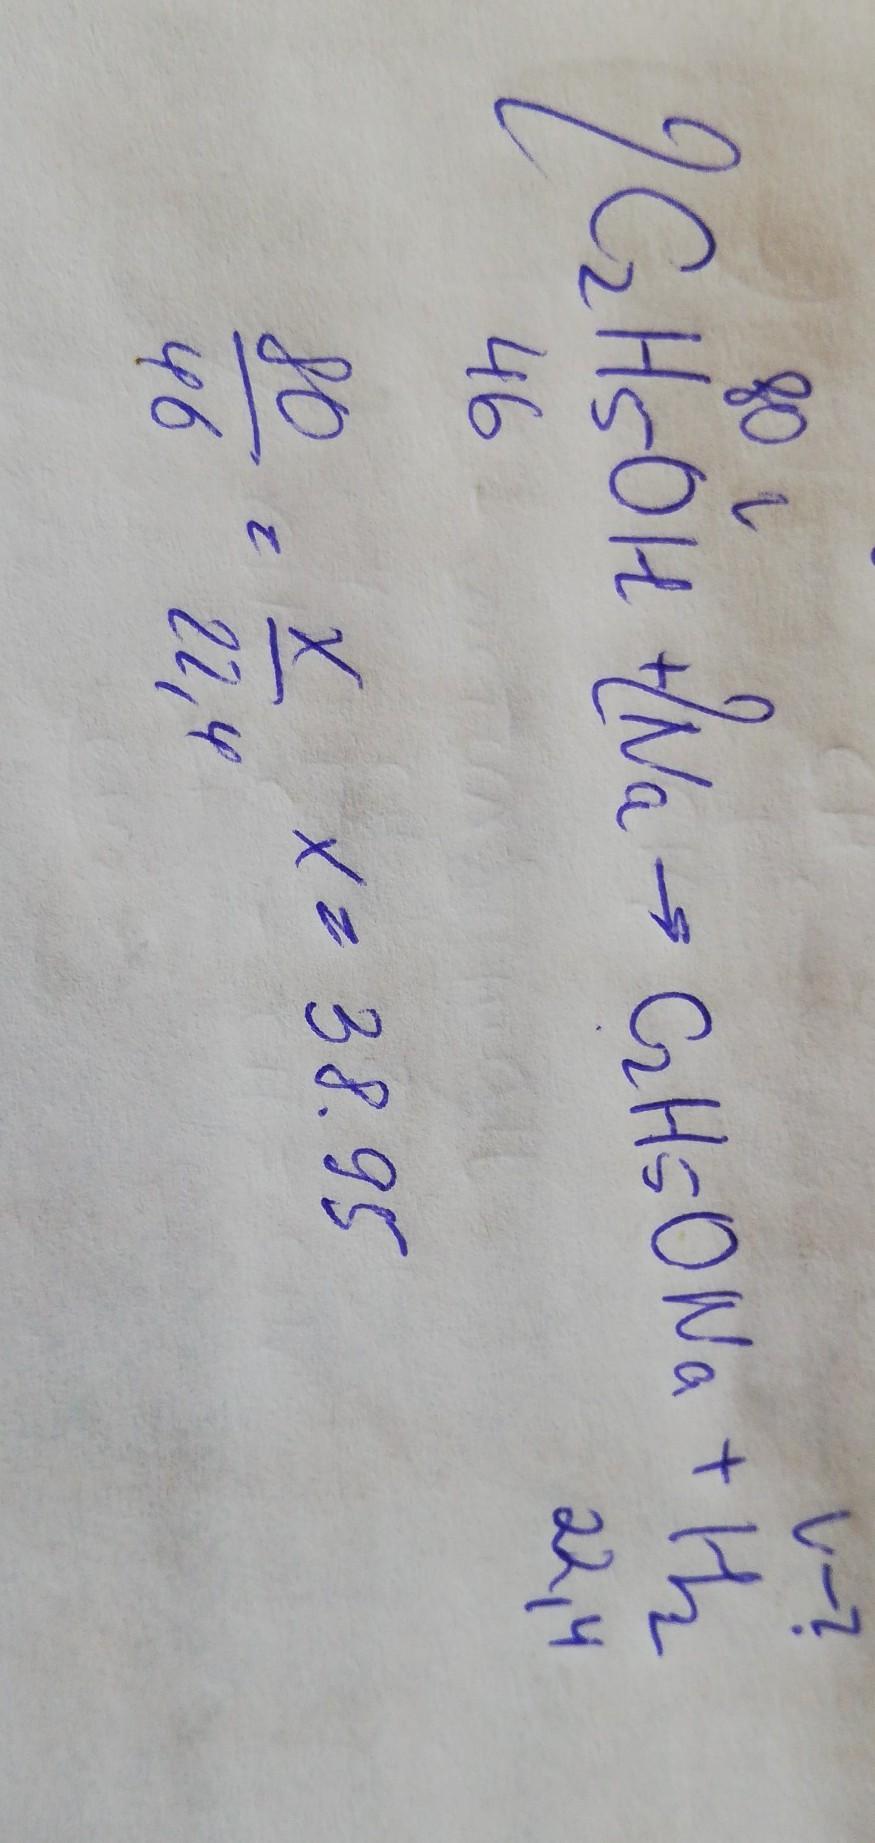 80 г V-?
2C2H5OH + 2Na → C2H5ONa + H2
46 22,4
80/46 = x/22,4 x = 38.95